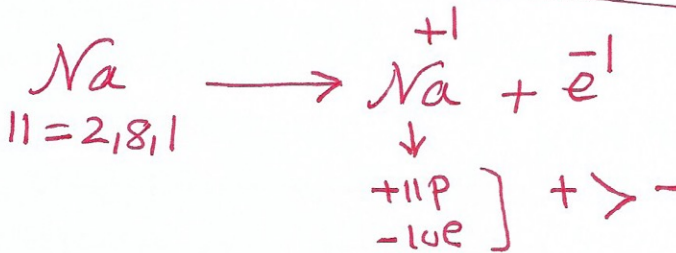 Na ⟶ Na⁺¹ + e⁻¹
11=2,8,1 ↓
+11P ] + > -
-10e